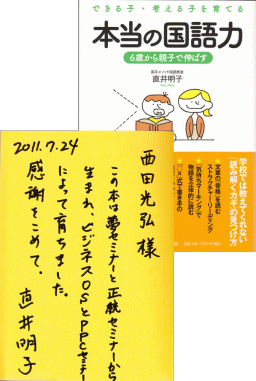 できる子・考える子を育てる
本当の国語力
6歳から親子で伸ばす
直井明子
学校では教えてくれない
「読み解くカギ」の見つけ方
文章の「骨格」を読む
ストラクチャーリーディング
気持ちマーキングで
物語を立体的に読む
西田光弘様
この本は夢セミナーと正統セミナーから
生まれ、ビジネスOSとPPCセミナー
によって育ちました。
感謝をこめて。 直井明子
2011.7.24